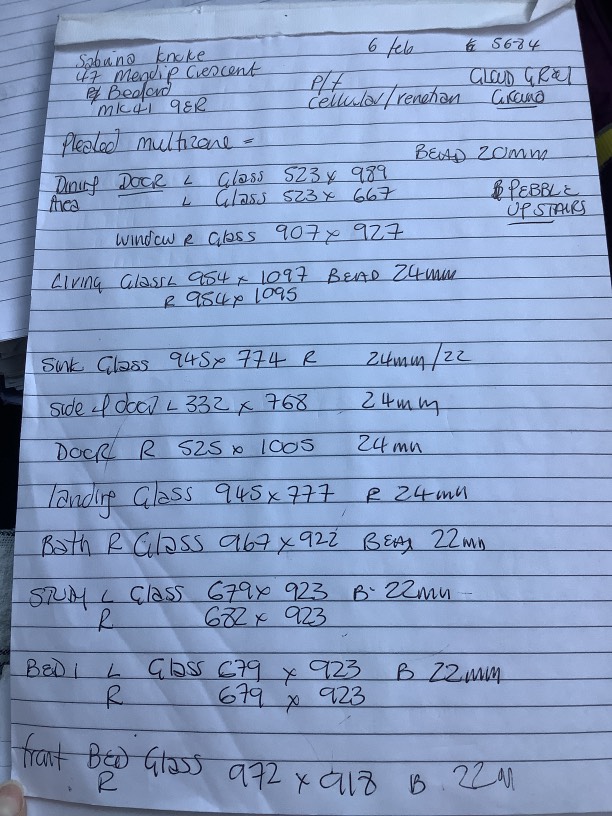 Sabrina Knoke 6 feb 5684
47 Mendip Crescent P/t CLOUD GREY
Bedford Cellular/venetian GRAND
MK41 9ER
Pleated multizone = BEAD 20mm
Dining DOOR L Glass 523 x 989
Area L Glass 523 x 667 PEBBLE
UPSTAIRS
Window R Glass 907 x 927
Living Glass L 954 x 1097 BEAD 24mm
R 954 x 1095
Sink Glass 945 x 774 R 24mm/22
Side of door L 332 x 768 24mm
DOOR R 525 x 1005 24mm
landing Glass 945 x 777 R 24mm
Bath R Glass 967 x 922 BEAD 22mm
STUDY L Glass 679 x 923 B. 22mm
R 682 x 923
BED 1 L Glass 679 x 923 B 22mm
R 679 x 923
front BED Glass 972 x 918 B. 22M
R